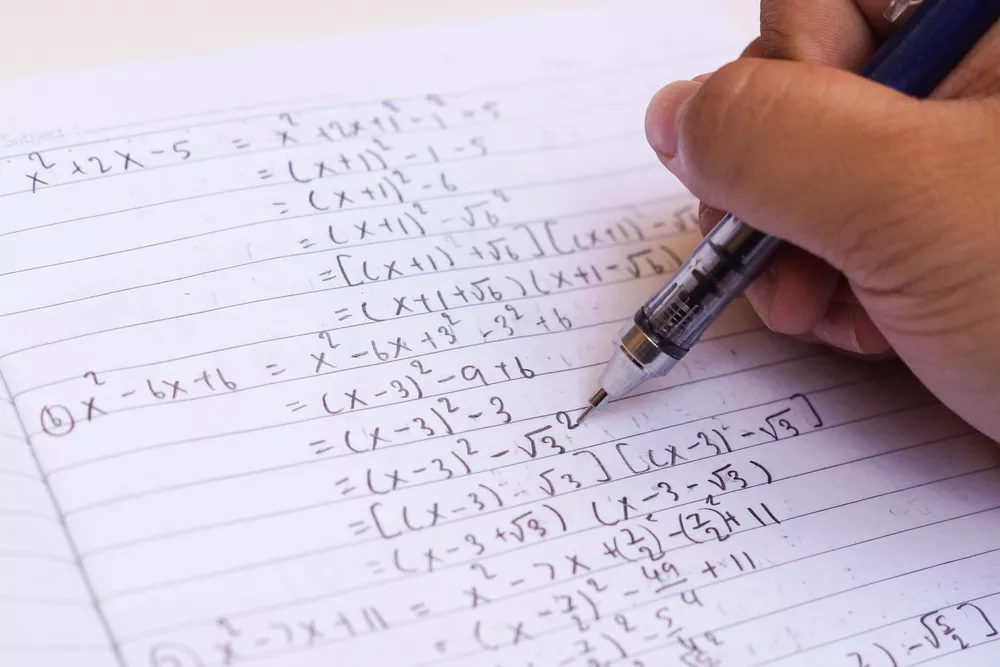 Subject
x² + 2x - 5 = x² + 2x + 1² - 1² - 5
= (x+1)² - 1 - 5
= (x+1)² - 6
= (x+1)² - √6²
= [(x+1)² + √6] [(x+1)² - √
= (x+1+√6) (x+1-√6)
(b) x² - 6x + 6 = x² - 6x + 3² - 3² + 6
= (x-3)² - 9 + 6
= (x-3)² - 3
= (x-3)² - √3²
= [(x-3) - √3] [(x-3)² - √3]
= (x-3+√3) (x-3-√3)
x² - 7x + 11 = x² - 7x + (7/2)² - (7/2)² + 11
= (x - 7/2)² - 49/4 + 11
7/2)² - 5/4
) - √5/2]